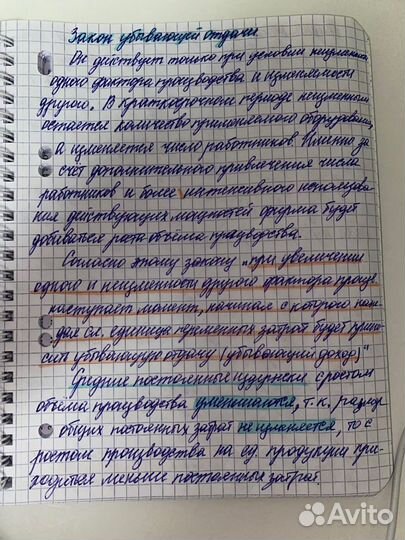 Закон убывающей отдачи
Он действует только при условии неизменности
одного фактора производства и изменяемости
другого. В краткосрочном периоде неизменным
остается количество применяемого оборудования,
а изменяется число работников. Именно за
счет дополнительного привлечения числа
работников и более интенсивного использова-
ния действующих мощностей фирма будет
добиваться роста объёма производства.
Согласно этому закону "при увеличении
одного и неизменности другого фактора произ.
наступает момент, начиная с которого каж-
дая сл. единица переменных затрат будет прино-
сить убывающую отдачу (убывающий доход)"
Средние постоянные издержки с ростом
объёма производства уменьшаются, т.к. размер
общих постоянных затрат не изменяется, то с
ростом производства на ед. продукции при-
ходится меньше постоянных затрат.
Avito